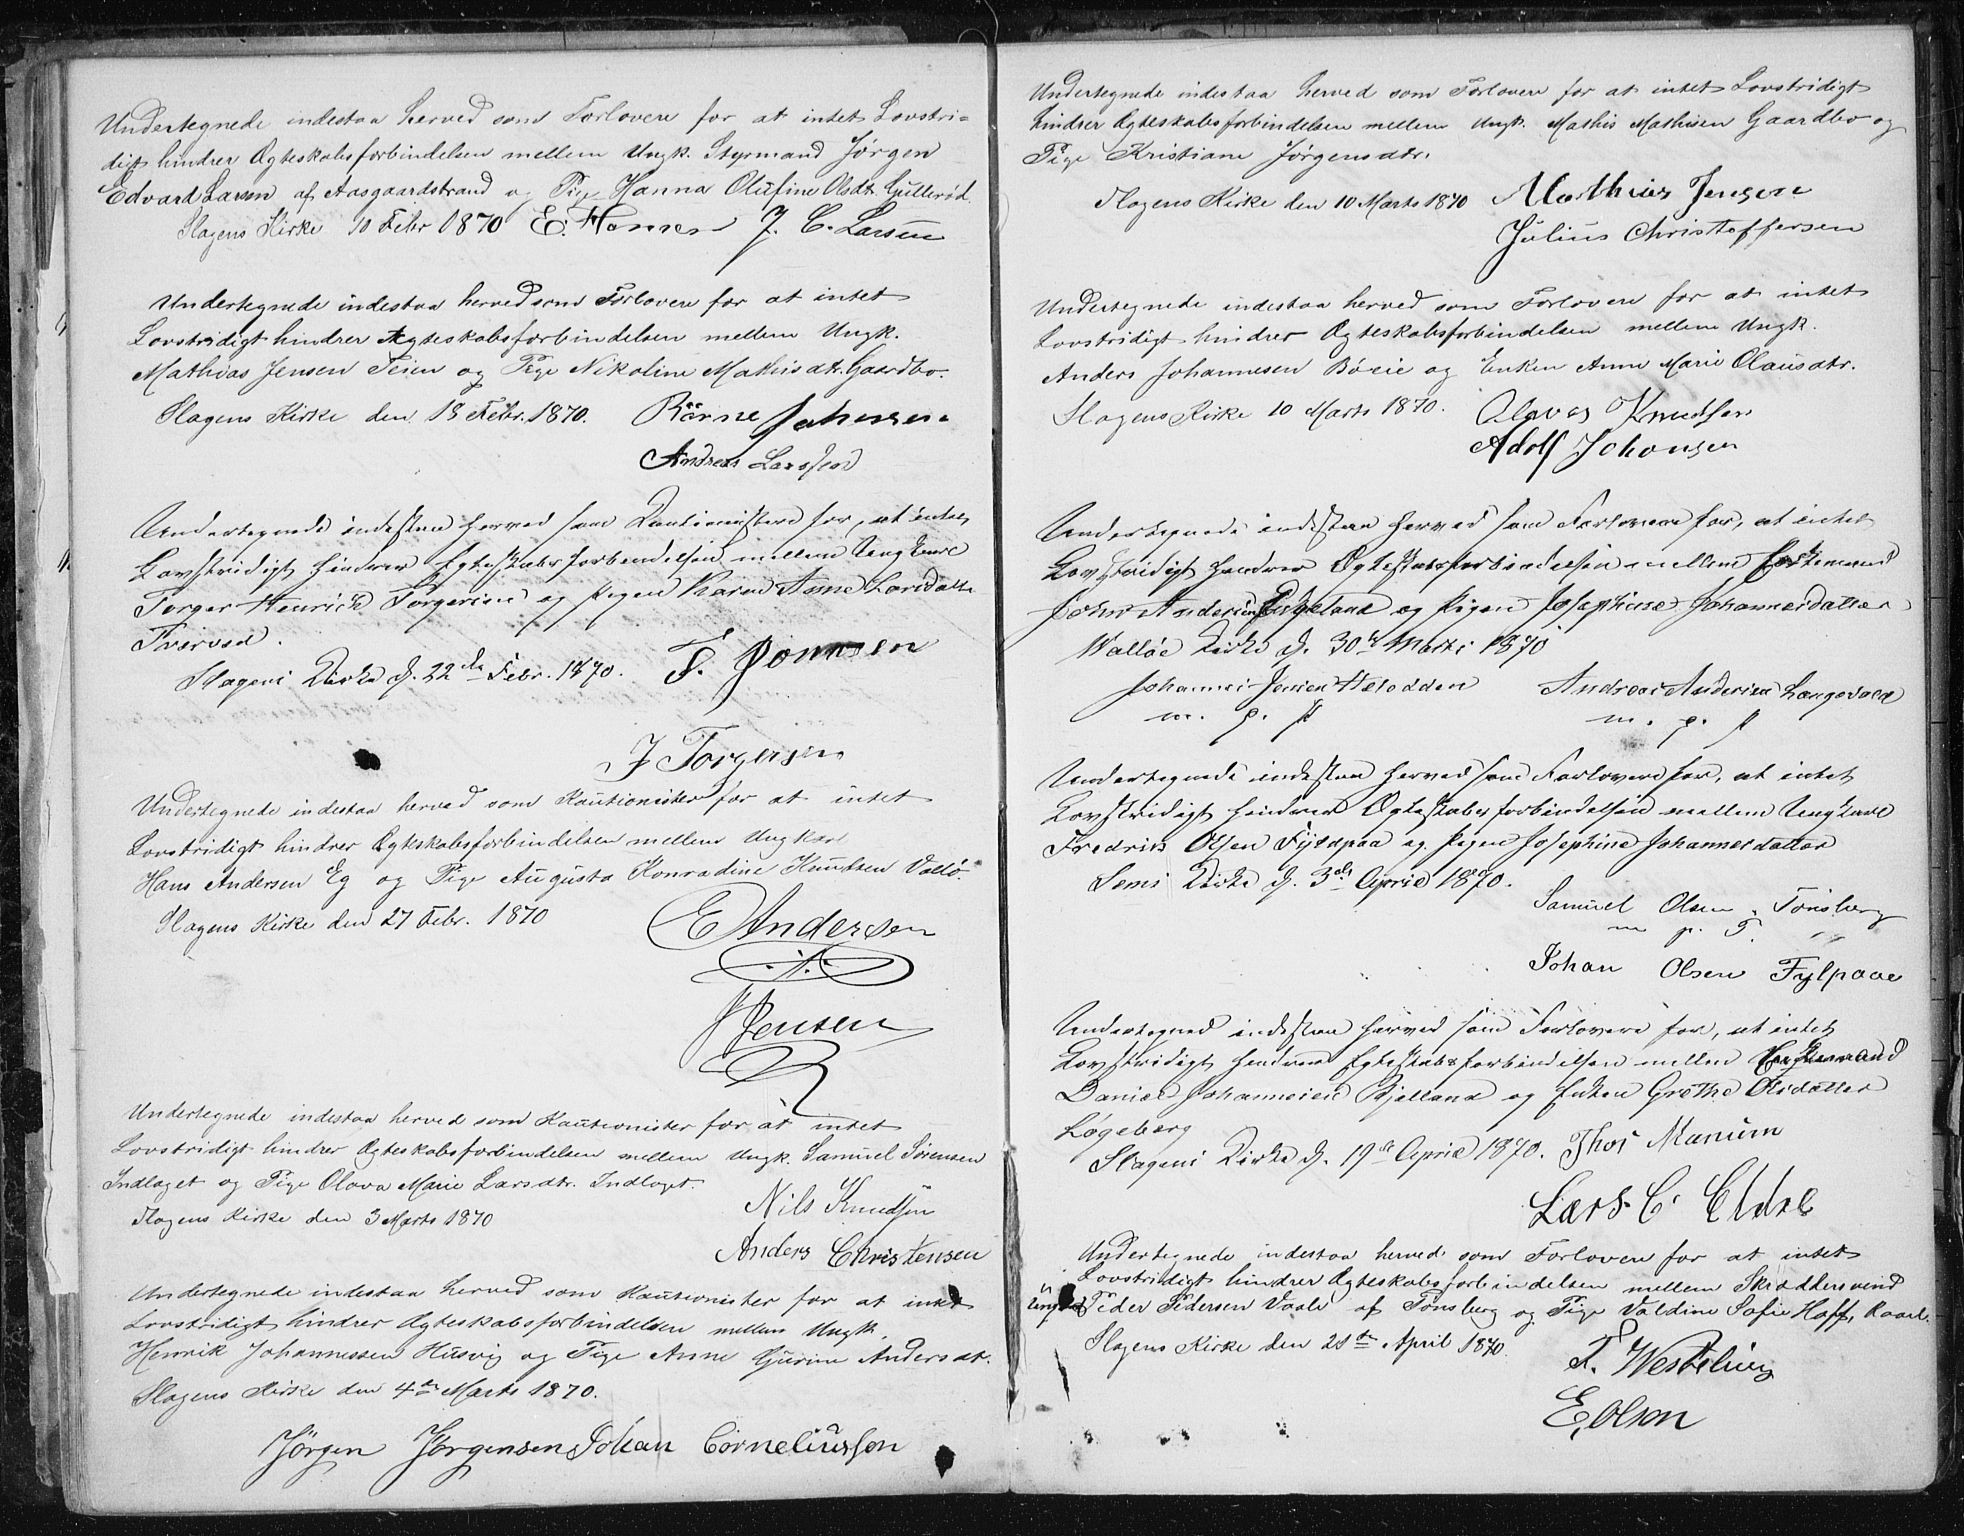 Undertegnede indestaa herved som Forlovere for at intet Lovstri-
digt hindrer Ægteskabsforbindelsen mellem Ungk. Styrmand Jørgen
Edvard Larsen af Aasgaardstrand og Pige Hanna Olufine Olsdt. Gullerød.
Slagens Kirke 10 Febr 1870 E. Hansen J. C. Larsen
Undertegnede indestaa herved som Forlovere for at intet
Lovstridigt hindrer Ægteskabsforbindelsen mellem Ungk.
Mathias Jensen Teien og Pige Nikoline Mathisdt. Gaardbo.
Slagens Kirke den 18 Febr. 1870. Rörne Johnsen
Andreas Larssen
Undertegnede indestaa herved som Kautionister for, at intet
Lovstridigt hindrer Egteskabsforbindelsen mellem Ungkarl
Torger Henrich Torgersen og Pigen Karen Anne Larsdatter
Tverved.
Slagens Kirke d. 22de Febr. 1870. F. Jonnsen
J Torgersen
Undertegnede indestaa herved som Kautionister for at intet
Lovstridigt hindrer Ægteskabsforbindelsen mellem Ungkar
Hans Andersen Eg og Pige Augusta Konradine Knudsen Vallö.
Slagens Kirke den 27 Febr. 1870 E Andersen
J Jensen
Undertegnede indestaa herved som Kautionister for at intet
Lovstridigt hindrer Ægteskabsforbindelsen mellem Ungk. Samuel Sörensen
Indlaget og Pige Olava Marie Larsdtr. Indlaget.
Slagens Kirke den 3 Marts 1870 Nils Knudsen
Anders Christensen
Undertegnede indestaa herved som Kautionister for at intet
Lovstridigt hindrer Ægteskabsforbindelsen mellem Ungk.
Henrik Johannessen Husvig og Pige Anne Gurine Andersdt.
Slagens Kirke den 4de Marts 1870.
Jörgen Jörgensen Johan Corneliussen
Undertegnede indestaa herved som Forlovere for at intet Lovstridigt
hindrer Ægteskabsforbindelsen mellem Ungk. Mathis Mathisen Gaardbo og
Pige Kristiane Jörgensdtr.
Slagens Kirke den 10 Marts 1870 Matthias Jensen
Julius Christoffersen
Undertegnede indestaa herved som Forlovere for at intet
Lovstridigt hindrer Ægteskabsforbindelsen mellem Ungk.
Anders Johannesen Böeie og Enken Anne Marie Olausdtr.
Slagens Kirke 10 Marts 1870. Olaves Knudsen
Adolf Johansen
Undertegnede indestaa herved som Forlovere for, at intet
Lovstridigt hindrer Ægteskabsforbindelsen mellem Enkemand
John Andersen og Pigen Josephine Johannesdatter
Walløe Kirke d. 30te Marts 1870
Johannes Jensen Andreas Andersen
m. p. P m. p. P
Undertegnede indestaa herved som Forlovere for, at intet
Lovstridigt hindrer Ægteskabsforbindelsen mellem Ungkarl
Fredrik Olsen Fyldpaa og Pigen Josephine Johannesdatter
Sems Kirke d. 3de April 1870.
Samuel Olsen, Tönsberg
m p. P.
Johan Olsen Fylpaae
Undertegned indestaa herved som Forlovere for, at intet
Lovstridigt hindrer Egteskabsforbindelsen mellem Enkemand
Daniel Johannesen Bjelland og Enken Grethe Olsdatter
Løgeberg
Slagens Kirke d. 19de April 1870. Thor Manum
Lars C. Eldre
Undertegnede indestaa herved som Forlovere for at intet
Lovstridigt hindrer Ægteskabsforbindelsen mellem Skrædersvend
Ungk. Peder Pedersen Vaale af Tönsberg og Pige Valdine Sofie Hoff,
Slagens Kirke den 21de April 1870.
E, Olsen